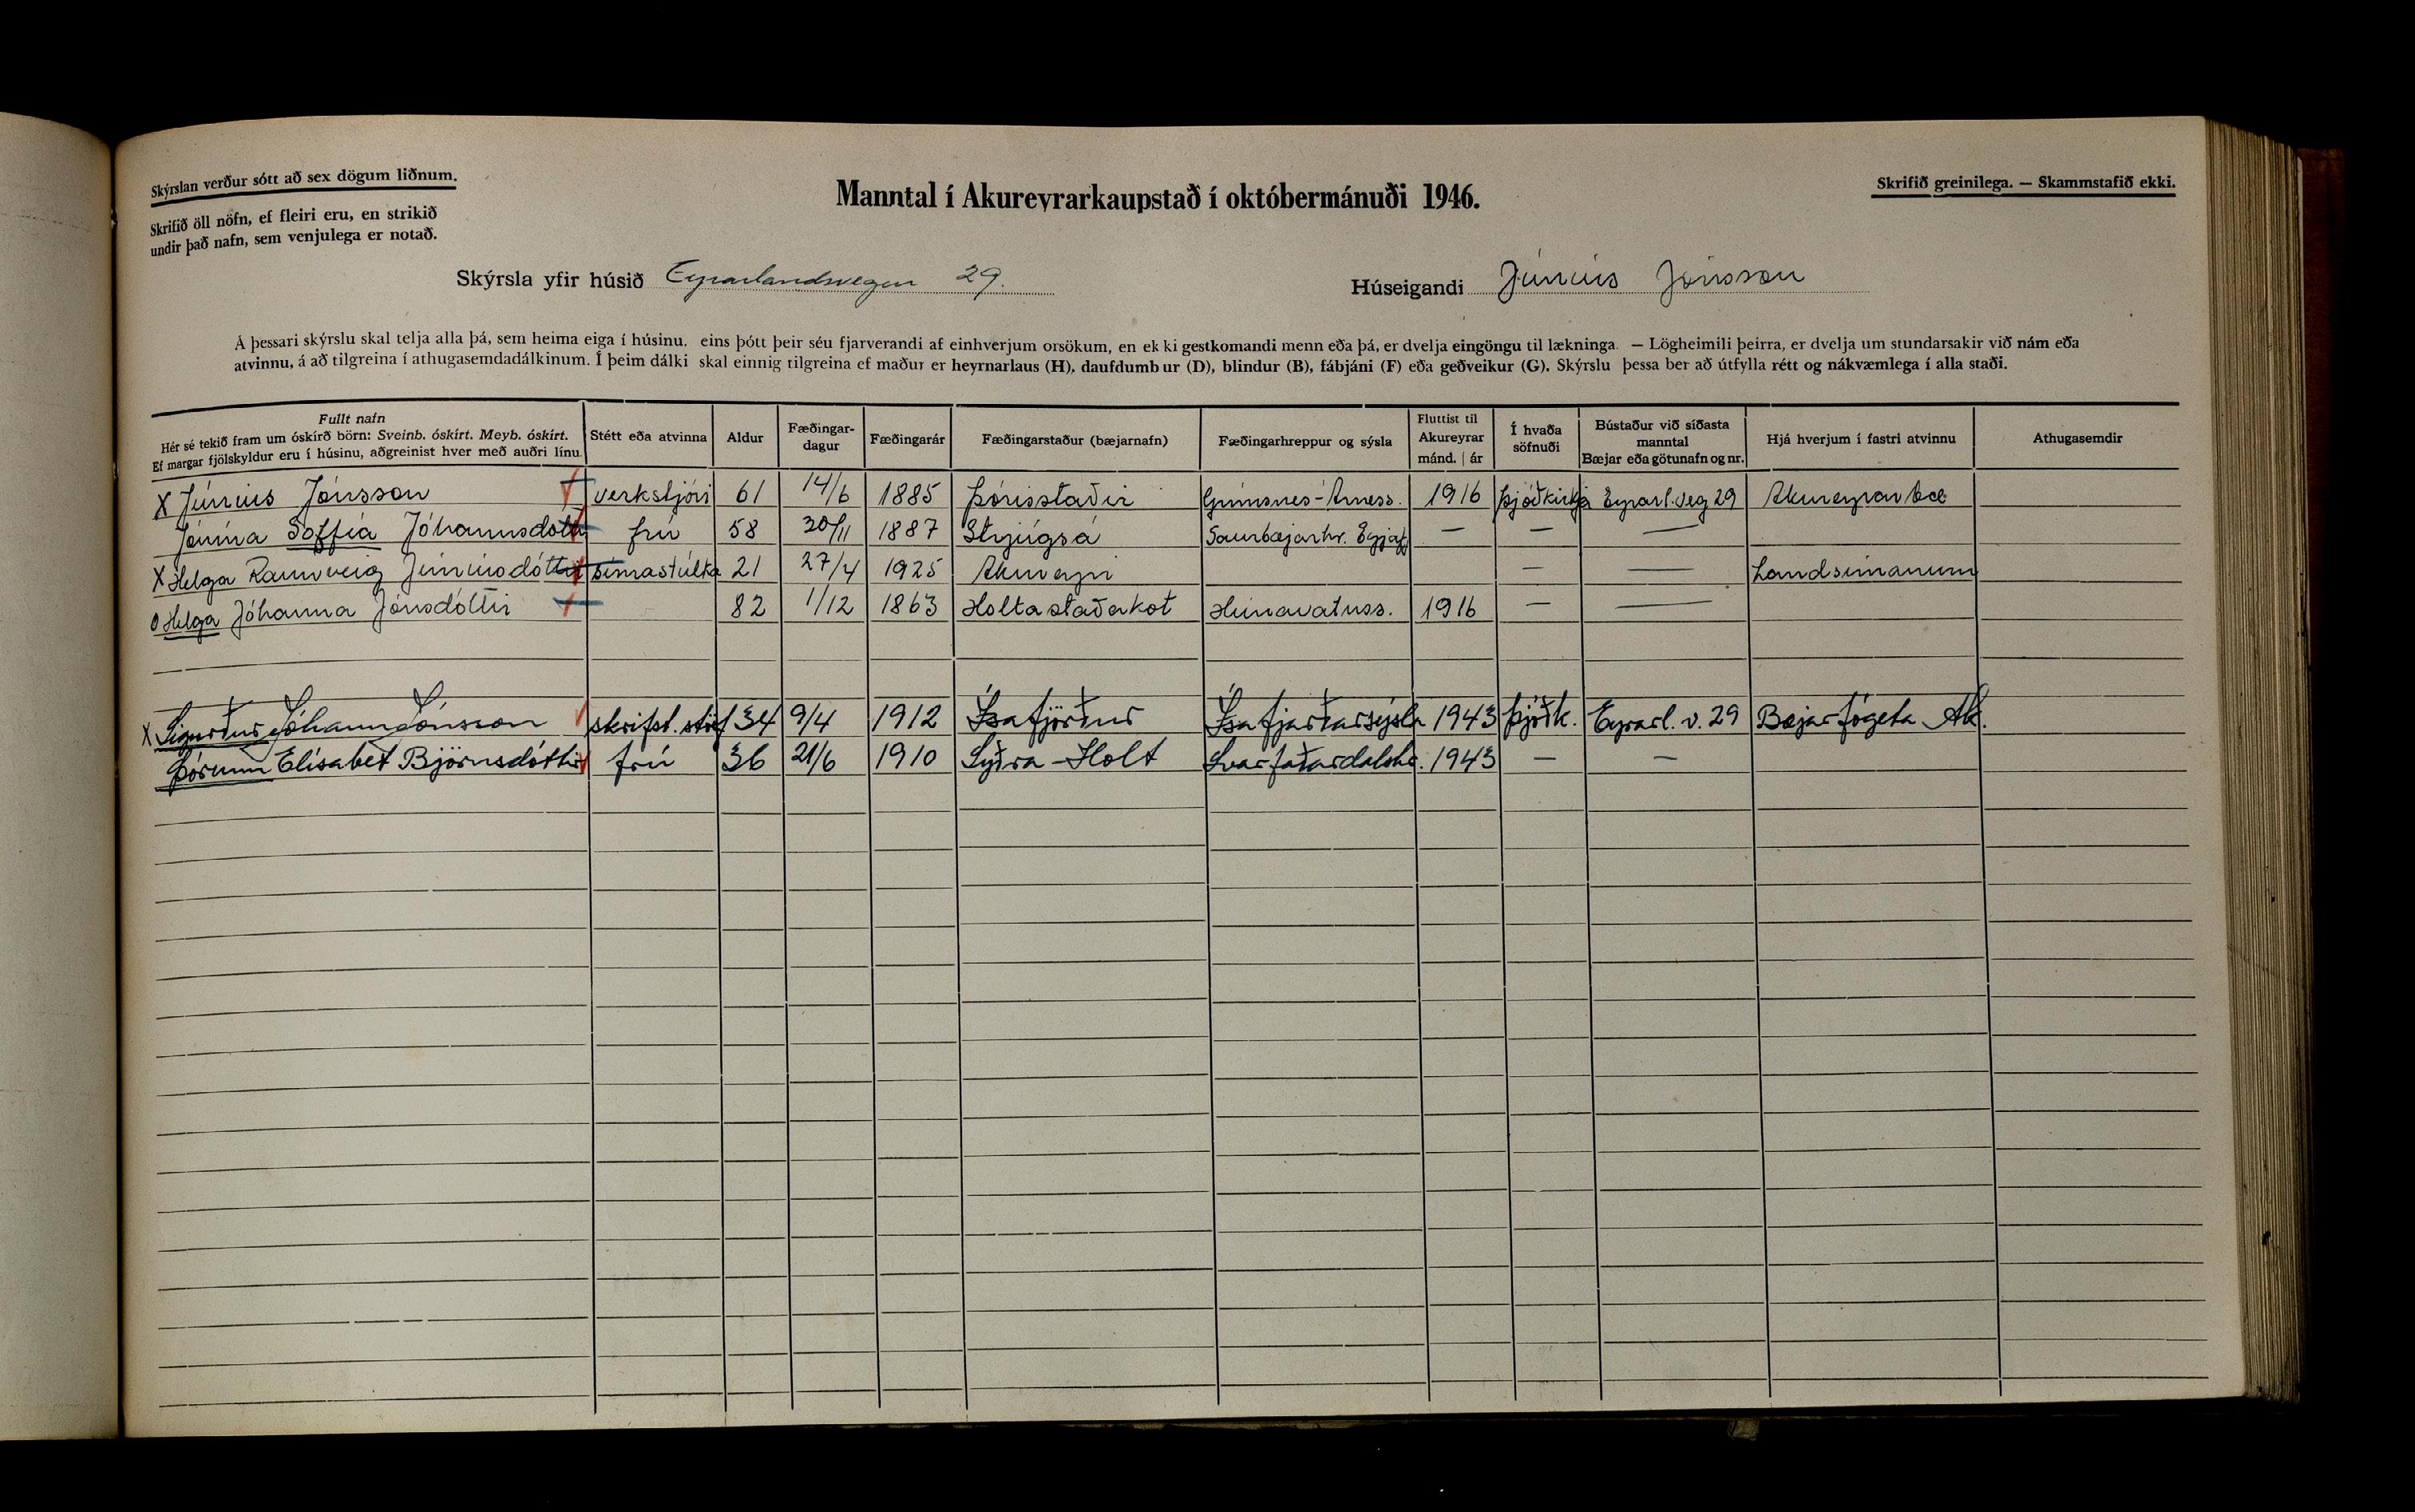 Skýrslan verður sótt að sex dögum liðnum.
Skrifið öll nöfn, ef fleiri eru, en strikið
undir það nafn, sem venjulega er notað.
Manntal í Akureyrarkaupstað í októbermánuði 1946.
Skrifið greinilega. — Skammstafið ekki.
Skýrsla yfir húsið Eyrarlandsvegur 29.
Húseigandi Júníus Jónsson
Á þessari skýrslu skal telja alla þá, sem heima eiga í húsinu, eins þótt þeir séu fjarverandi af einhverjum orsökum, en ekki gestkomandi menn eða þá, er dvelja eingöngu til lækninga. — Lögheimili þeirra, er dvelja um stundarsakir við nám eða
atvinnu, á að tilgreina í athugasemdadálkinum. Í þeim dálki skal einnig tilgreina ef maður er heyrnarlaus (H), daufdumbur (D), blindur (B), fábjáni (F) eða geðveikur (G). Skýrslu þessa ber að útfylla rétt og nákvæmlega í alla staði.
Fullt nafn
Hér sé tekið fram um óskírð börn: Sveinb. óskírt. Meyb. óskírt.
Ef margar fjölskyldur eru í húsinu, aðgreinist hver með auðri línu.
Stétt eða atvinna
Aldur
Fæðingar-
dagur
Fæðingarár
Fæðingarstaður (bæjarnafn)
Fæðingarhreppur og sýsla
Fluttist til
Akureyrar
mánd. | ár
Í hvaða
söfnuði
Bústaður við síðasta
manntal
Bæjar eða götunafn og nr.
Hjá hverjum í fastri atvinnu
Athugasemdir
X Júníus Jónsson verkstjóri 61 14/6 1885 Þórisstaðir Grímsnes-Árness. 1916 Þjóðkirkja Eyrarl.veg 29 Akureyrarbæ
Jónína Soffía Jóhannsdóttir frú 58 30/11 1887 Strjúgsá Saurbæjarhr. Eyjaf. — — —
X Helga Rannveig Júníusdóttir símastúlka 21 27/4 1925 Akureyri — — Landsímanum
0 Helga Jóhanna Jónsdóttir 82 1/12 1863 Holtastaðakot Húnavatnss. 1916 — —
X Sigurður Jóhann Jónsson skrifst.stöf 34 9/4 1912 Ísafjörður Ísafjarðarsýsla 1943 Þjóðk. Eyrarl. v. 29 Bæjarfógeta Ak.
Þórunn Elísabet Björnsdóttir frú 36 21/6 1910 Syðra-Holt Svarfaðardalshr. 1943 — —